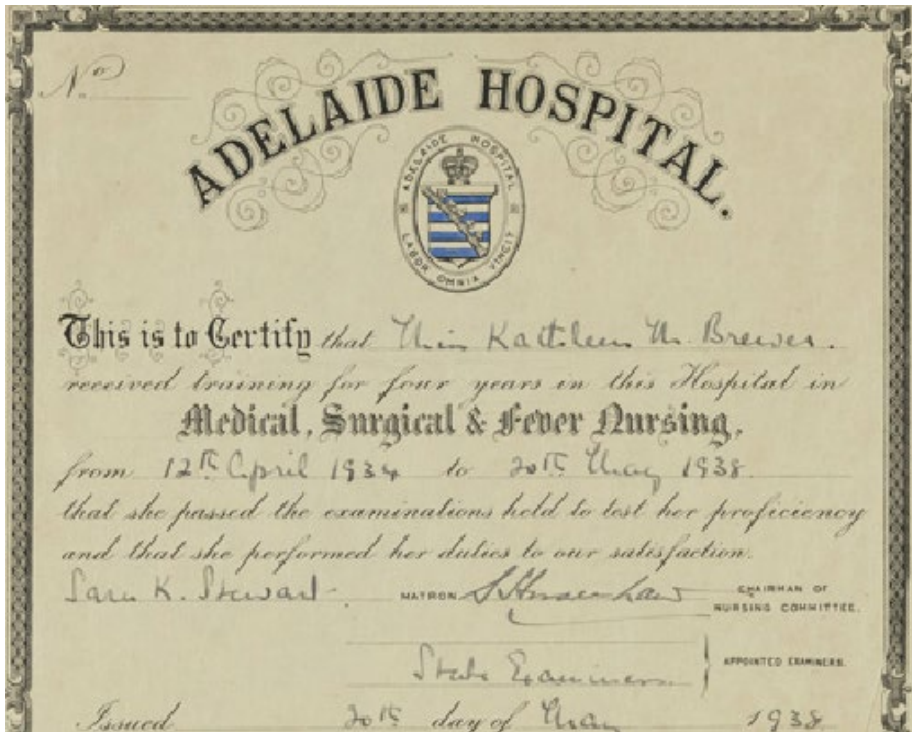 No
ADELAIDE HOSPITAL.
ADELAIDE HOSPITAL
LABOR OMNIA VINCIT
This is to Certify that Miss Kathleen M. Brewer.
received training for four years in this Hospital in
Medical, Surgical & Fever Nursing,
from 12th April 1934 to 20th May 1938.
that she passed the examinations held to test her proficiency
and that she performed her duties to our satisfaction.
Sara K. Stewart. MATRON CHAIRMAN OF
NURSING COMMITTEE.
State Examiners APPOINTED EXAMINERS.
Issued 20th day of May 1938